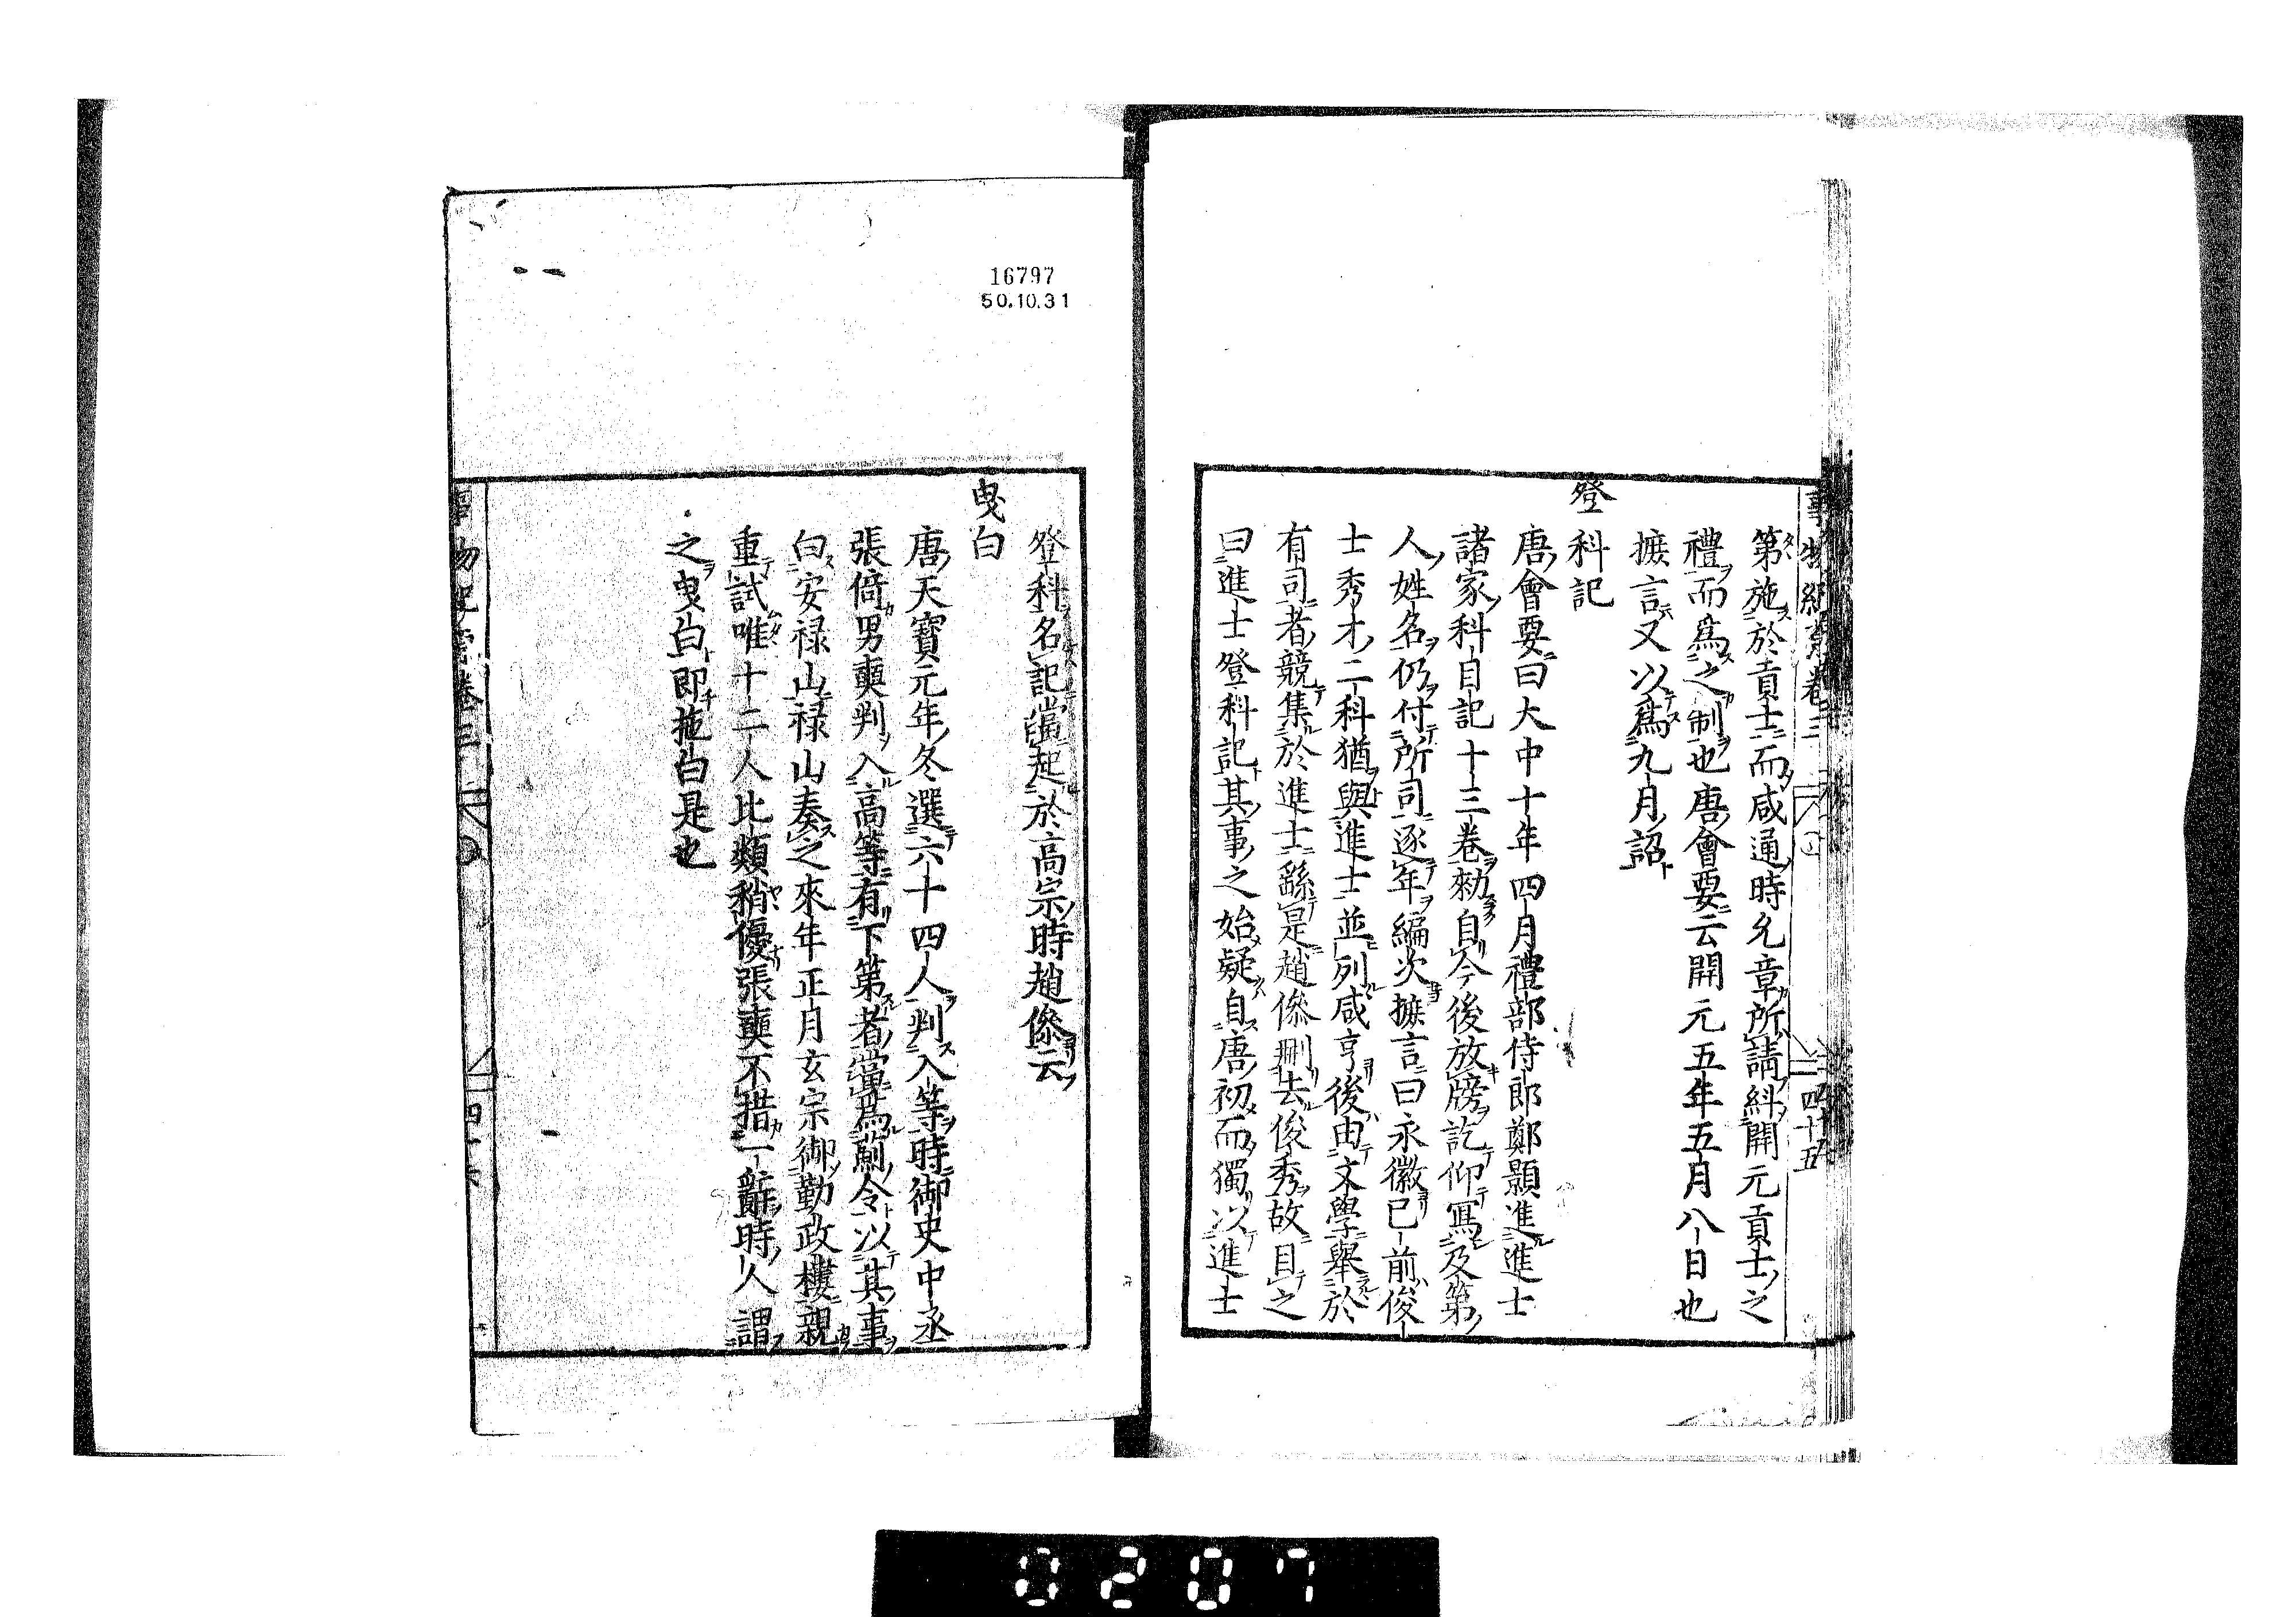 第施於貢士而咸通時允章所請糾開元貢士之
禮而爲之制也唐會要云開元五年五月八日也
摭言又以爲九月詔
登科記
唐會要曰大中十年四月禮部侍郎鄭顥進進士
諸家科目記十三卷勑自今後放牓訖仰寫及第
人姓名仍付所司逐年編次摭言曰永徽已前俊
士秀才二科猶與進士並列咸亨後由文學舉於
有司者競集於進士繇是趙傪刪去俊秀故目之
曰進士登科記其事之始疑自唐初而獨以進士
登科名記當起於高宗時趙傪云
曳白
唐天寶元年冬選六十四人判入等時御史中丞
張倚男奭判入高等有下第者當爲薊令以其事
白安禄山禄山奏之來年正月玄宗御勤政樓親
重試唯十二人比類稍優張奭不措一辭時人謂
之曳白即拖白是也
事物紀原卷三
四十五
16797
50.10.31
0207